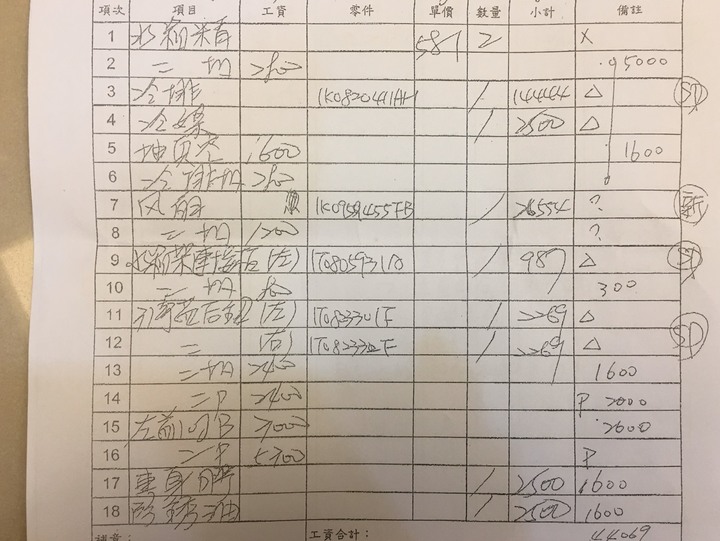 項次 項目 工資 零件 單價 數量 小計 備註
1 水箱精 587 2 X
2 二 切 5000
3 冷排 1K0820411AH 1 14444 △ SD
4 冷媒 1 2500 △
5 抽真空 1600 1600
6 冷排切
7 风扇 1K0959455FB 1 26554 ? 新
8 二 切 1200 ?
9 (左) 1T0805931A 1 987 △ SD
10 二 切 300
11 (左) 1T0823301F 1 2269 △ SD
12 二 (右) 1T0823302F 1 2269 △
13 二切 2400 1600
14 二P 2400 P 2000
15 左前门B 7000 2600
16 二P 5300 P
17 車身膠 1 2500 1600
18 防銹油 1 2500 1600
工資合計： 44069